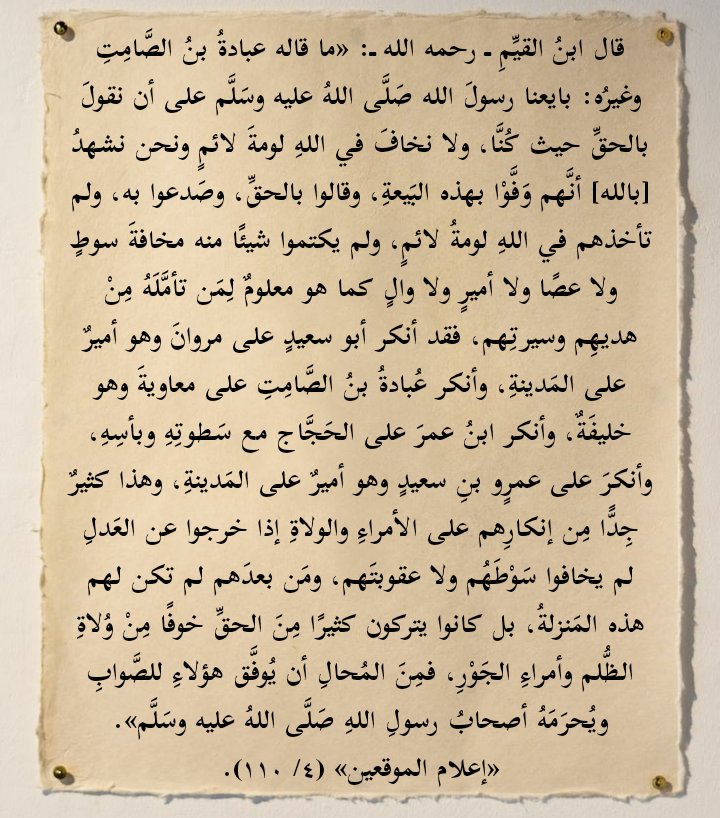 قال ابنُ القيِّمِ ـ رحمه الله ـ: «ما قاله عبادةُ بنُ الصَّامِتِ
وغيرُه: بايعنا رسولَ الله صَلَّى اللهُ عليه وسَلَّم على أن نقولَ
بالحقِّ حيث كُنَّا، ولا نخافَ في اللهِ لومةَ لائمٍ ونحن نشهدُ
[بالله] أنَّهم وَفَّوْا بهذه البَيعةِ، وقالوا بالحقِّ، وصَدعوا به، ولم
تأخذهم في اللهِ لومةُ لائمٍ، ولم يكتموا شيئًا منه مخافةَ سوطٍ
ولا عصًا ولا أميرٍ ولا والٍ كما هو معلومٌ لِمَن تأمَّلَهُ مِنْ
هديهِم وسيرتِهم، فقد أنكر أبو سعيدٍ على مروانَ وهو أميرٌ
على المَدينةِ، وأنكر عُبادةُ بنُ الصَّامِتِ على معاويةَ وهو
خليفَةٌ، وأنكر ابنُ عمرَ على الحَجَّاج مع سَطوتِهِ وبأسِهِ،
وأنكرَ على عمرٍو بنِ سعيدٍ وهو أميرٌ على المَدينةِ، وهذا كثيرٌ
جِدًّا مِن إنكارِهم على الأمراءِ والولاةِ إذا خرجوا عن العَدلِ
لم يخافوا سَوْطَهُم ولا عقوبتَهم، ومَن بعدَهم لم تكن لهم
هذه المَنزلةُ، بل كانوا يتركون كثيرًا مِنَ الحقِّ خوفًا مِنْ وُلاةِ
الظُّلم وأمراءِ الجَوْرِ، فمِنَ المُحالِ أن يُوفَّق هؤلاءِ للصَّوابِ
ويُحرَمَهُ أصحابُ رسولِ اللهِ صَلَّى اللهُ عليه وسَلَّم».
«إعلام الموقعين» (٤/ ١١٠).